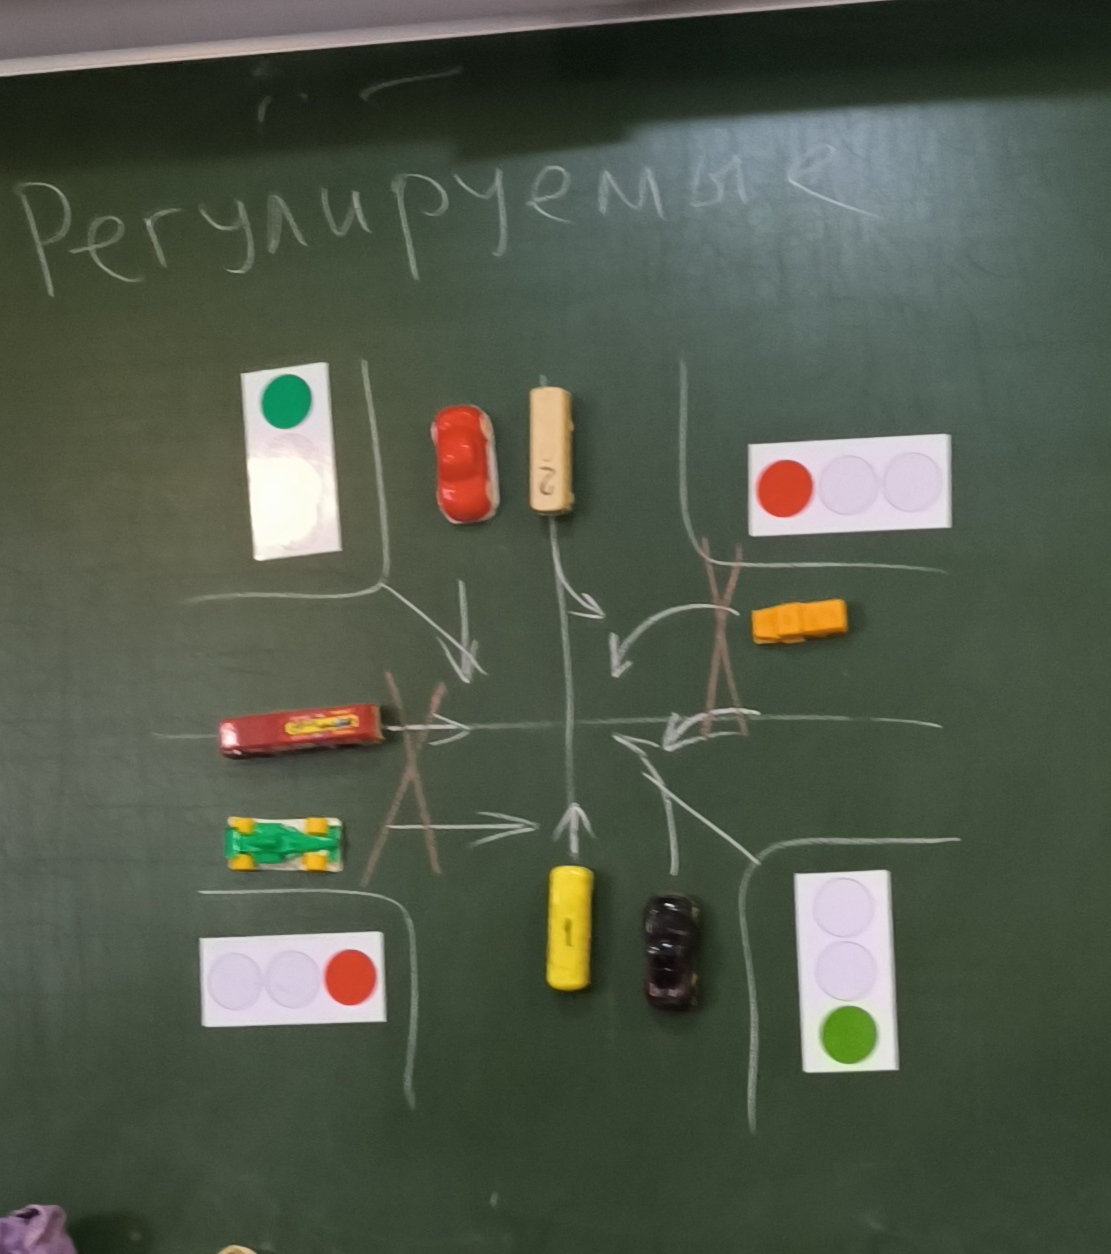 Регулируемые